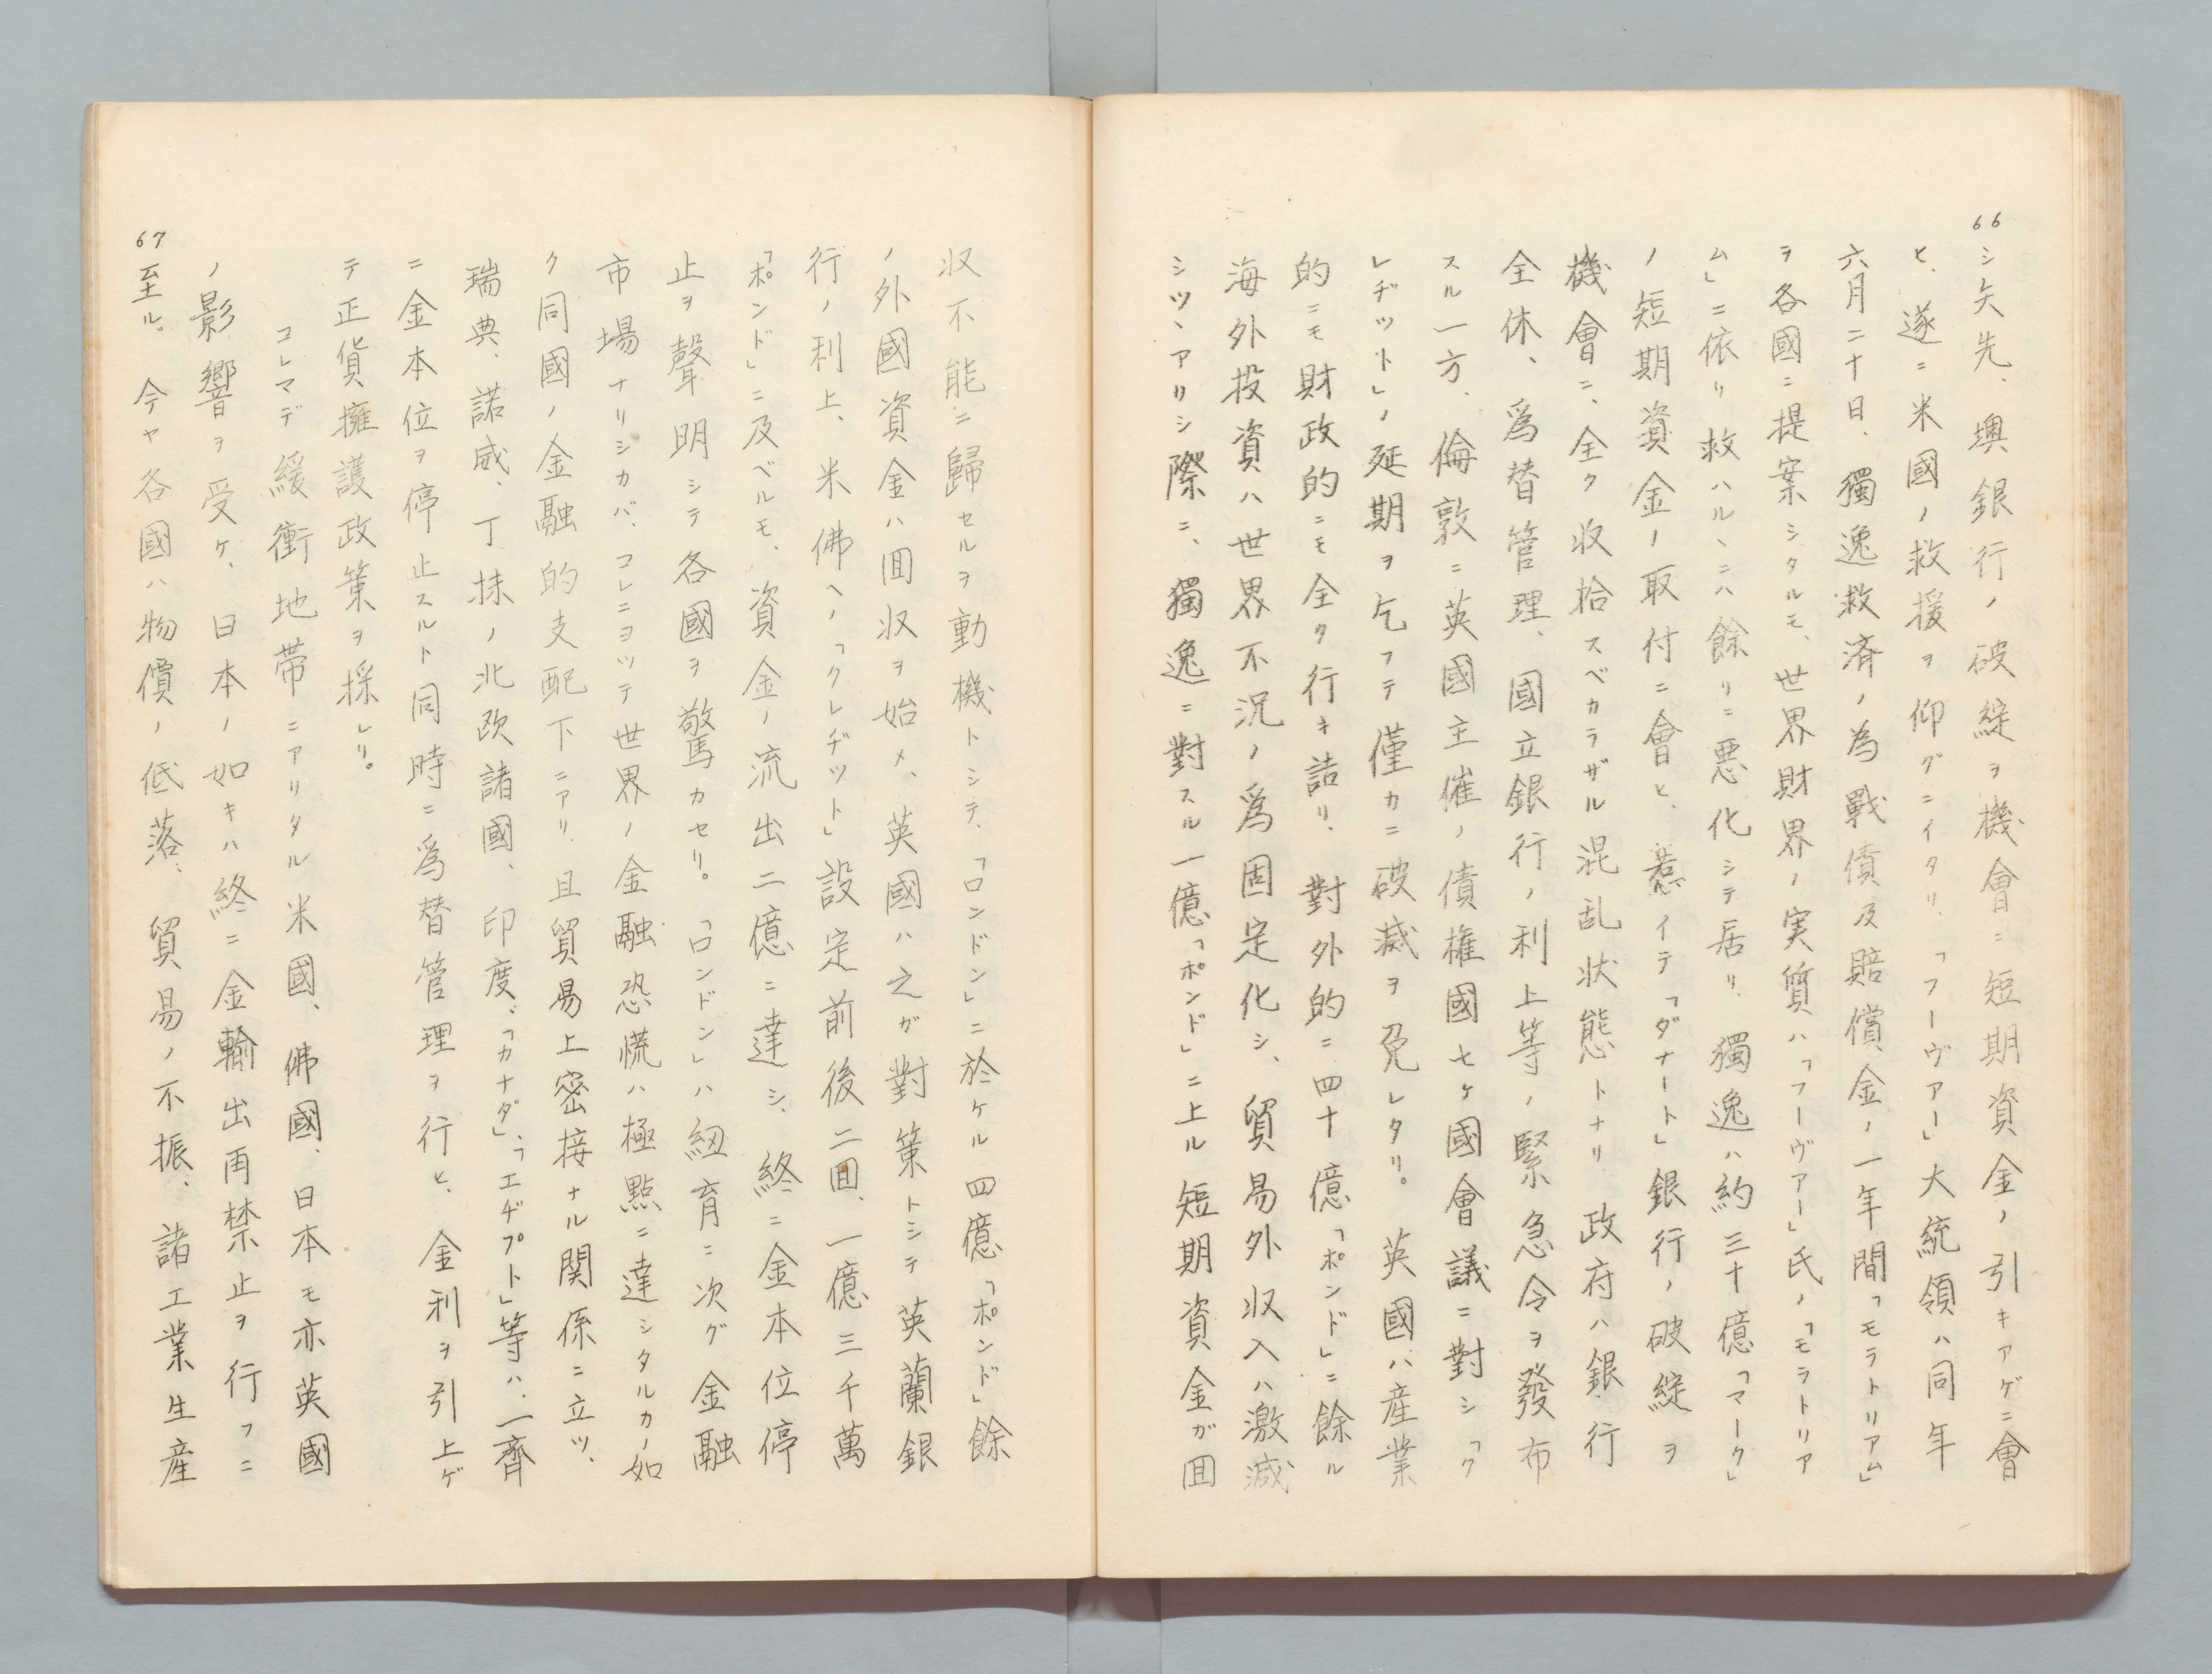 66
シ矢先、墺銀行ノ破綻ヲ機會ニ短期資金ノ引キアゲニ會
ヒ、遂ニ米國ノ救援ヲ仰グニイタリ、「フーヴアー」大統領ハ同年
六月二十日、獨逸救済ノ為戰債及賠償金ノ一年間「モラトリアム」
ヲ各國ニ提案シタルモ、世界財界ノ実質ハ「フーヴアー」氏ノ「モラトリア
ム」ニ依リ救ハルヽニハ餘リニ悪化シテ居リ、獨逸ハ約三十億「マーク」
ノ短期資金ノ取付ニ會ヒ、惹イテ「ダナート」銀行ノ破綻ヲ
機會ニ、全ク收拾スベカラザル混乱状態トナリ、政府ハ銀行
全休、爲替管理、國立銀行ノ利上等ノ緊急令ヲ發布
スル一方、倫敦ニ英國主催ノ債権國七ヶ國會議ニ對シ「ク
レヂツト」ノ延期ヲ乞フテ僅カニ破滅ヲ免レタリ。英國ハ産業
的ニモ財政的ニモ全ク行キ詰リ、對外的ニ四十億「ポンド」ニ餘ル
海外投資ハ世界不況ノ爲固定化シ、貿易外収入ハ激減
シツヽアリシ際ニ、獨逸ニ對スル一億「ポンド」ニ上ル短期資金ガ回
収不能ニ歸セルヲ動機トシテ、「ロンドン」ニ於ケル四億「ポンド」餘
ノ外國資金ハ回収ヲ始メ、英國ハ之ガ對策トシテ英蘭銀
行ノ利上、米佛ヘノ「クレヂツト」設定前後二回、一億三千萬
「ポンド」ニ及ベルモ、資金ノ流出二億ニ達シ、終ニ金本位停
止ヲ聲明シテ各國ヲ驚カセリ。「ロンドン」ハ紐育ニ次グ金融
市場ナリシカバ、コレニヨツテ世界ノ金融恐慌ハ極點ニ達シタルカノ如
ク同國ノ金融的支配下ニアリ、且貿易上密接ナル関係ニ立ツ、
瑞典、諾威、丁抹ノ北欧諸國、印度、「カナダ」、「エヂプト」等ハ、一齊
ニ金本位ヲ停止スルト同時ニ爲替管理ヲ行ヒ、金利ヲ引上ゲ
テ正貨擁護政策ヲ採レリ。
コレマデ緩衝地帯ニアリタル米國、佛國、日本モ亦英國
ノ影響ヲ受ケ、日本ノ如キハ終ニ金輸出再禁止ヲ行フニ
至ル。今ヤ各國ハ物價ノ低落、貿易ノ不振、諸工業生産
67